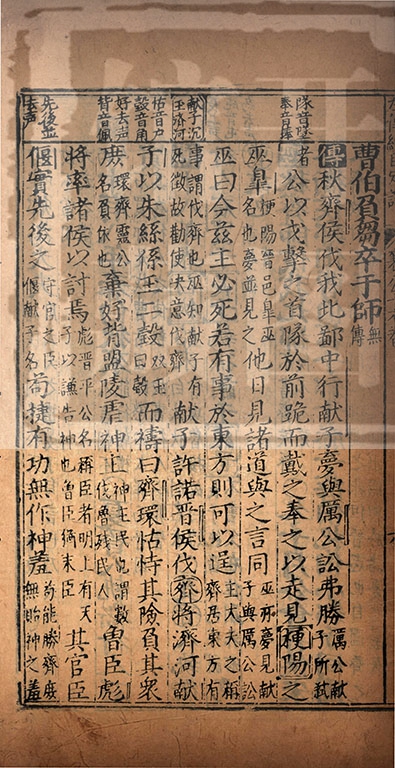 曹伯負芻卒于師無傳
隊音墜
奉音捧
傳秋齊侯伐我北鄙中行献子夢與厲公訟弗勝厲公献子所弒
者公以戈擊之首隊於前跪而戴之奉之以走見梗陽之
巫臯梗陽晉邑臯巫名也夢並見之他日見諸道與之言同巫亦夢見献子與厲公訟
巫曰今兹主必死若有事於東方則可以逞主大夫之称齊居東方有
献子沉
玉齊河
事謂伐齊也巫知献子有死徵故勸使夬意伐齊献子許諾晉侯伐齊將濟河献
怙音户
瑴音角
子以朱絲係玉二瑴双玉曰瑴而禱曰齊環怙恃其險負其衆
好去声
背音佩
庶環齊靈公名負依也棄好背盟陵虐神主神主民也謂数伐魯残民人曾臣彪
將率諸侯以討焉彪晉平公名称臣者明上有天子以謙告神也曾臣猶末臣其官臣
先後並
去声
偃實先後之守官之臣偃献子名苟捷有功無作神羞無貽神之羞